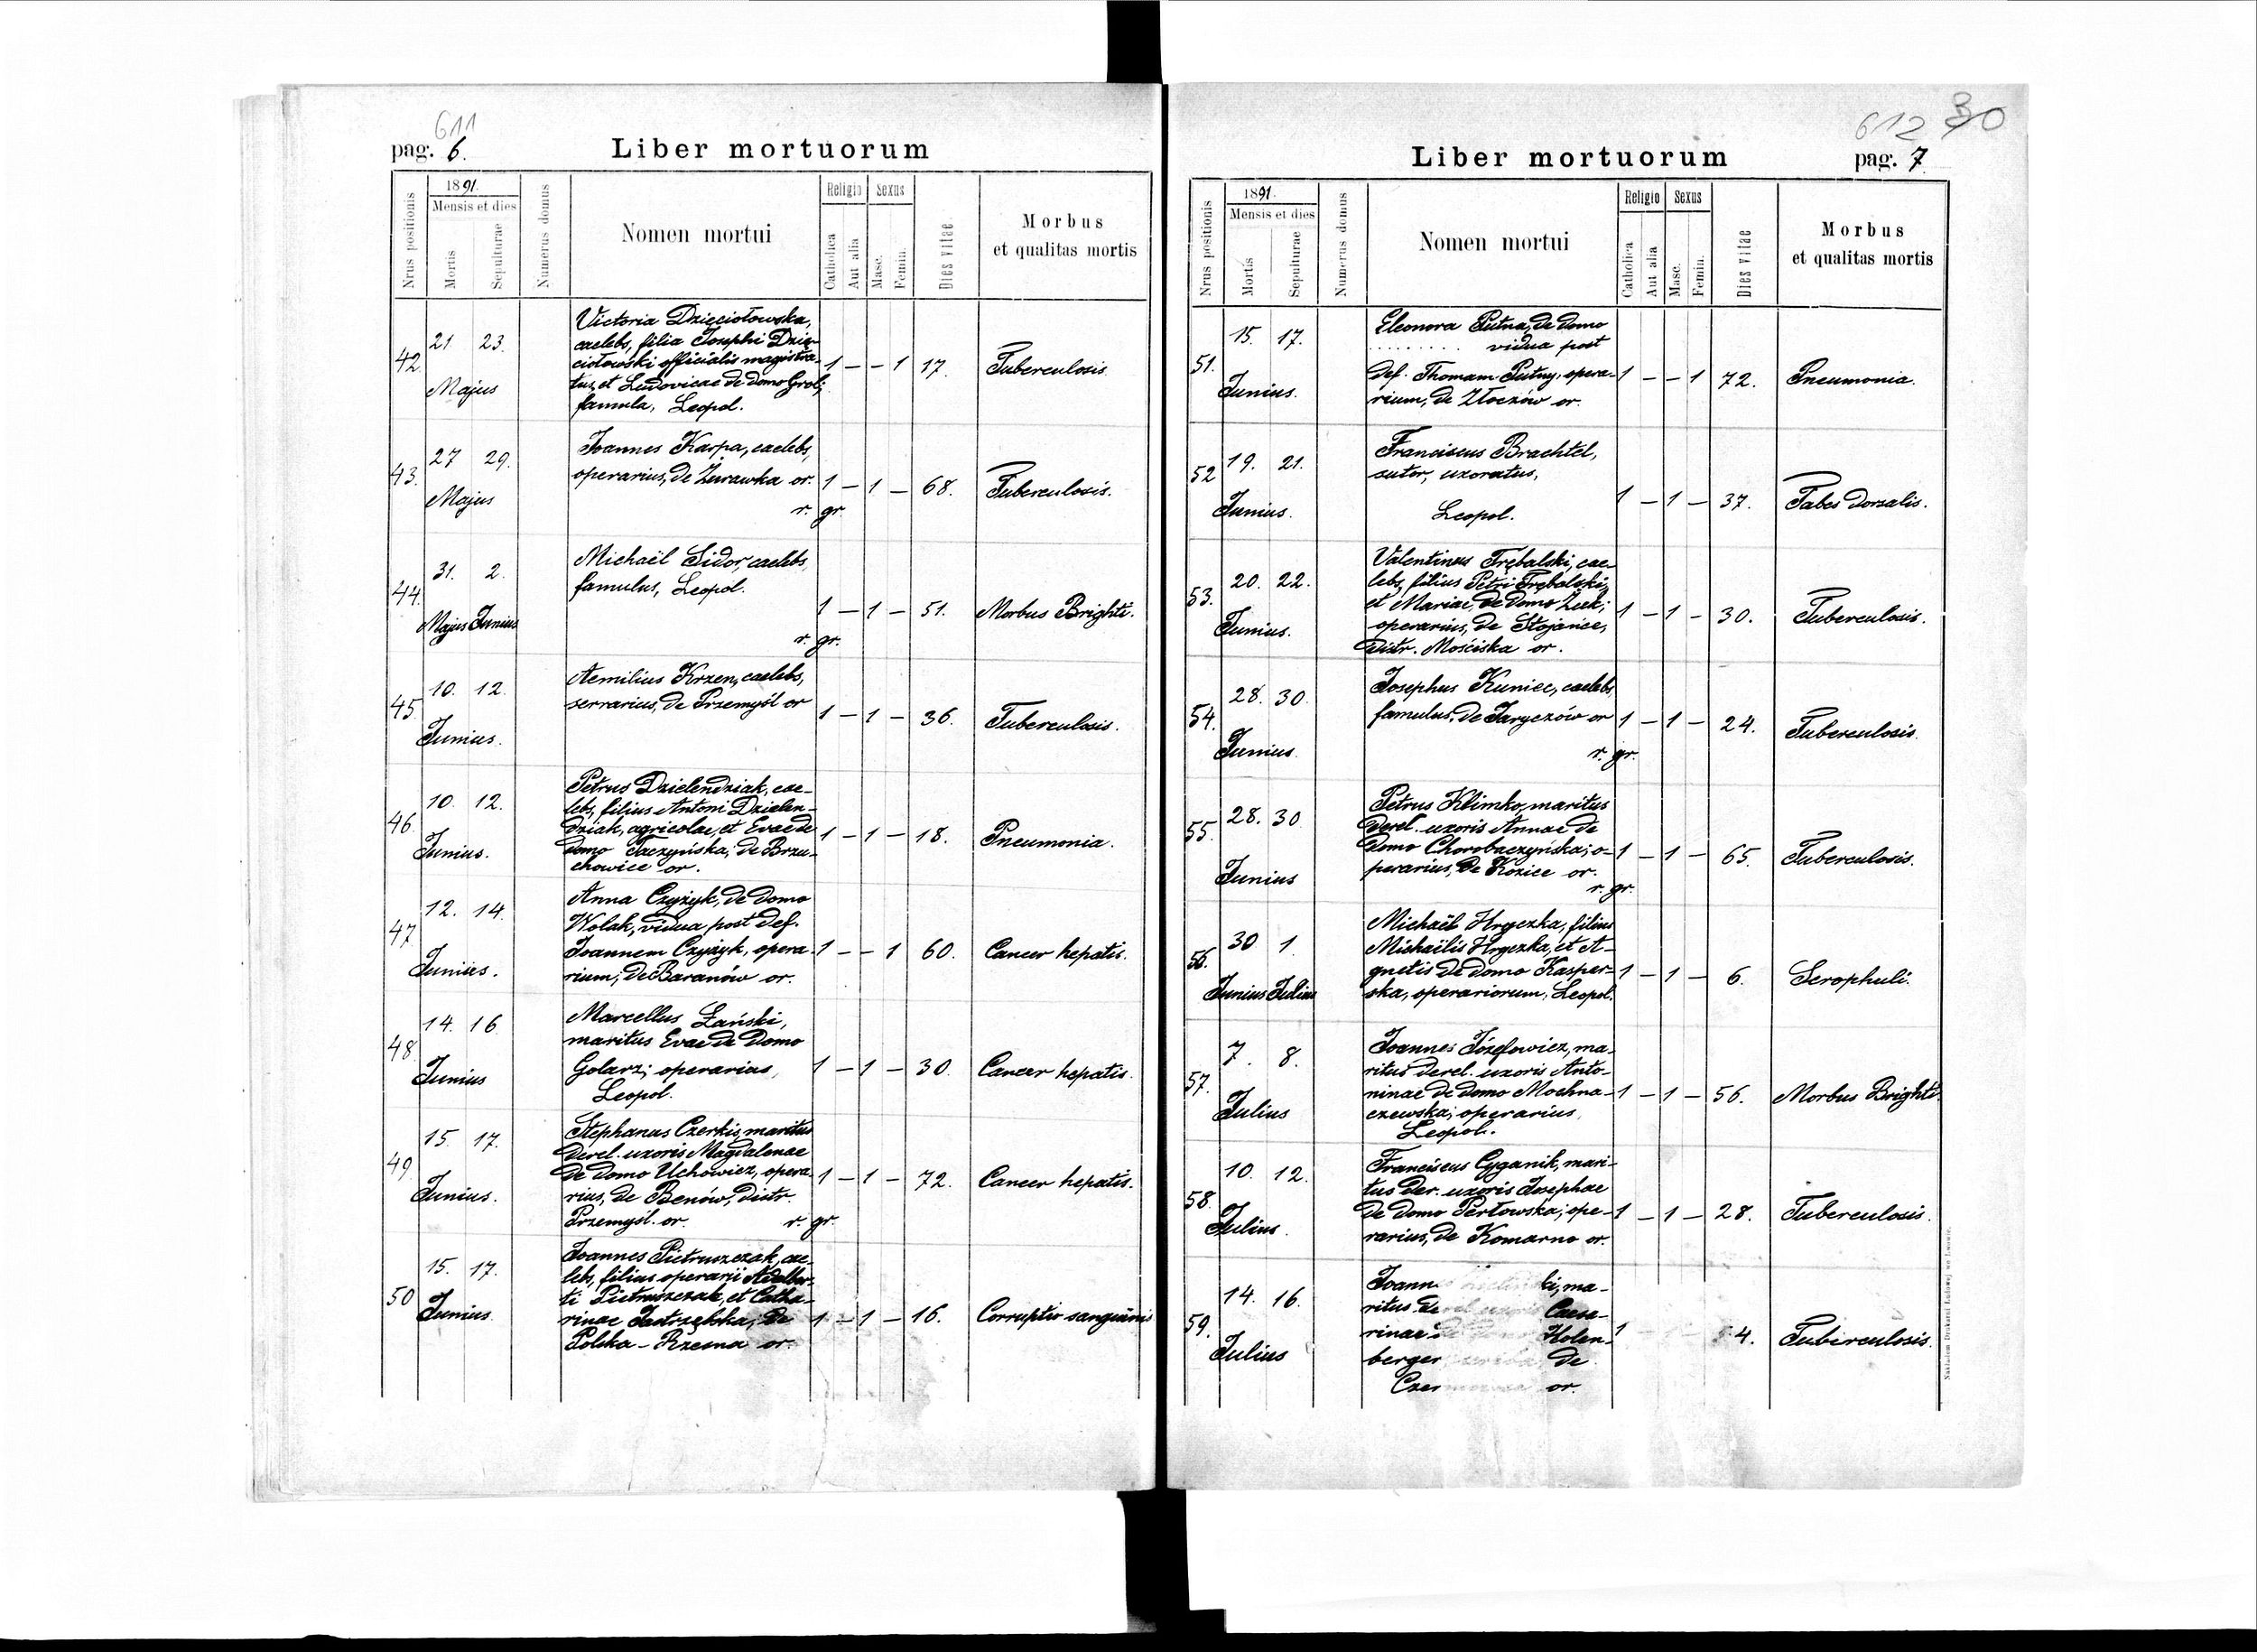 611
pag. 6.
Liber mortuorum
Nrus positionis
1891.
Mensis et dies
Mortis
Sepulturae
Numerus domus
Nomen mortui
Religio
Catholica
Aut alia
Sexus
Masc.
Femin.
Dies vitae
Morbus
et qualitas mortis
42.
21 23.
Majus
Victoria Dzięciołowska,
caelebs, filia Josephi Dzię-
ciołowski officialis magistra-
tus, et Ludovicae de domo Grol;
famula, Leopol.
1 — — 1 17.
Tuberculosis
43.
27 29.
Majus
Joannes Karpa, caelebs,
operarius, de Żurawka or.
r. gr.
1 — 1 — 68.
Tuberculosis.
44.
31. 2.
Majus Junius
Michaël Sidor, caelebs,
famulus, Leopol.
r. gr.
1 — 1 — 51.
Morbus Brighti.
45.
10. 12.
Junius.
Aemilius Krzen, caelebs,
serrarius, de Przemyśl or
1 — 1 — 36.
Tuberculosis.
46.
10. 12.
Junius.
Petrus Dzielendziak, cae-
lebs, filius Antoni Dzielen-
dziak, agricolae, et Evae de
domo Taczyńska; de Brzu-
chowice or.
1 — 1 — 18.
Pneumonia.
47.
12. 14.
Junius.
Anna Czyżyk, de domo
Wolak, vidua post def.
Joannem Czyżyk, opera-
rium, de Baranów or.
1 — — 1 60.
Cancer hepatis.
48.
14. 16
Junius
Marcellus Łański,
maritus Evae de domo
Golarz; operarius,
Leopol.
1 — 1 — 30.
Cancer hepatis.
49.
15. 17.
Junius.
Stephanus Czerkis, maritus
derel. uxoris Magdalenae
de domo Uchowicz, opera-
rius, de Benów, distr.
Przemyśl. or. r. gr.
1 — 1 — 72.
Cancer hepatis.
50
15. 17.
Junius.
Joannes Pietruszczak, cae-
lebs, filius operarii Adalber-
ti Pietruszczak, et Catha-
rinae Jastrzębska; de
Polska - Rzesna or.
1 — 1 — 16.
Corruptio sanguinis
612 30
Liber mortuorum
pag. 7
Nrus positionis
1891.
Mensis et dies
Mortis
Sepulturae
Numerus domus
Nomen mortui
Religio
Catholica
Aut alia
Sexus
Masc.
Femin.
Dies vitae
Morbus
et qualitas mortis
51.
15. 17.
Junius.
Eleonora Putna, de domo
. . . . . . . . . vidua post
def. Thomam Putny, opera-
rium, de Złoczów or.
1 — — 1 72.
Pneumonia.
52
19. 21.
Junius.
Franciscus Brachtel,
sutor, uxoratus,
Leopol.
1 — 1 — 37.
Tabes dorsalis.
53.
20. 22.
Junius.
Valentinus Trębalski, cae-
lebs, filius Petri Trębalski,
et Mariae, de domo Żuk;
operarius, de Stojańce,
distr. Mościska or.
1 — 1 — 30.
Tuberculosis.
54.
28. 30.
Junius.
Josephus Kuniec, caelebs,
famulus, de Jaryczów or
r. gr.
1 — 1 — 24.
Tuberculosis.
55.
28. 30
Junius
Petrus Klimko, maritus
derel. uxoris Annae de
domo Chorobaczyńska; o-
perarius, de Kozice or.
r. gr.
1 — 1 — 65.
Tuberculosis.
56.
30 1
Junius Julius
Michaël Hryczka, filius
Michaëlis Hryczka, et A-
gnetis de domo Kasper-
ska, operariorum, Leopol.
1 — 1 — 6.
Scrophuli.
57.
7. 8.
Julius
Joannes Józefowicz, ma-
ritus derel. uxoris Anto-
ninae de domo Mochna-
czewska; operarius,
Leopol.
1 — 1 — 56.
Morbus Brighti
58.
10. 12.
Julius.
Franciscus Cyganik, mari-
tus der. uxoris Josephae
de domo Perłowska; ope-
rarius, de Komarno or.
1 — 1 — 28.
Tuberculosis.
59.
14. 16.
Julius
ki, ma-
ritus derel. uxoris Caesa-
rinae de domo Kolen-
berger de
or.
1 54.
Tuberculosis.